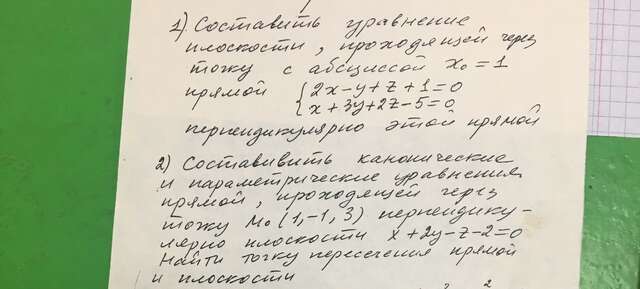 1) Составить уравнение
плоскости, проходящей через
точку с абсциссой x₀ = 1
прямой { 2x - y + z + 1 = 0
x + 3y + 2z - 5 = 0
перпендикулярно этой прямой
2) Составивить канонические
и параметрические уравнения
прямой, проходящей через
точку M₀ (1, -1, 3) перпендику-
лярно плоскости x + 2y - z - 2 = 0
Найти точку пересечения прямой
и плоскости